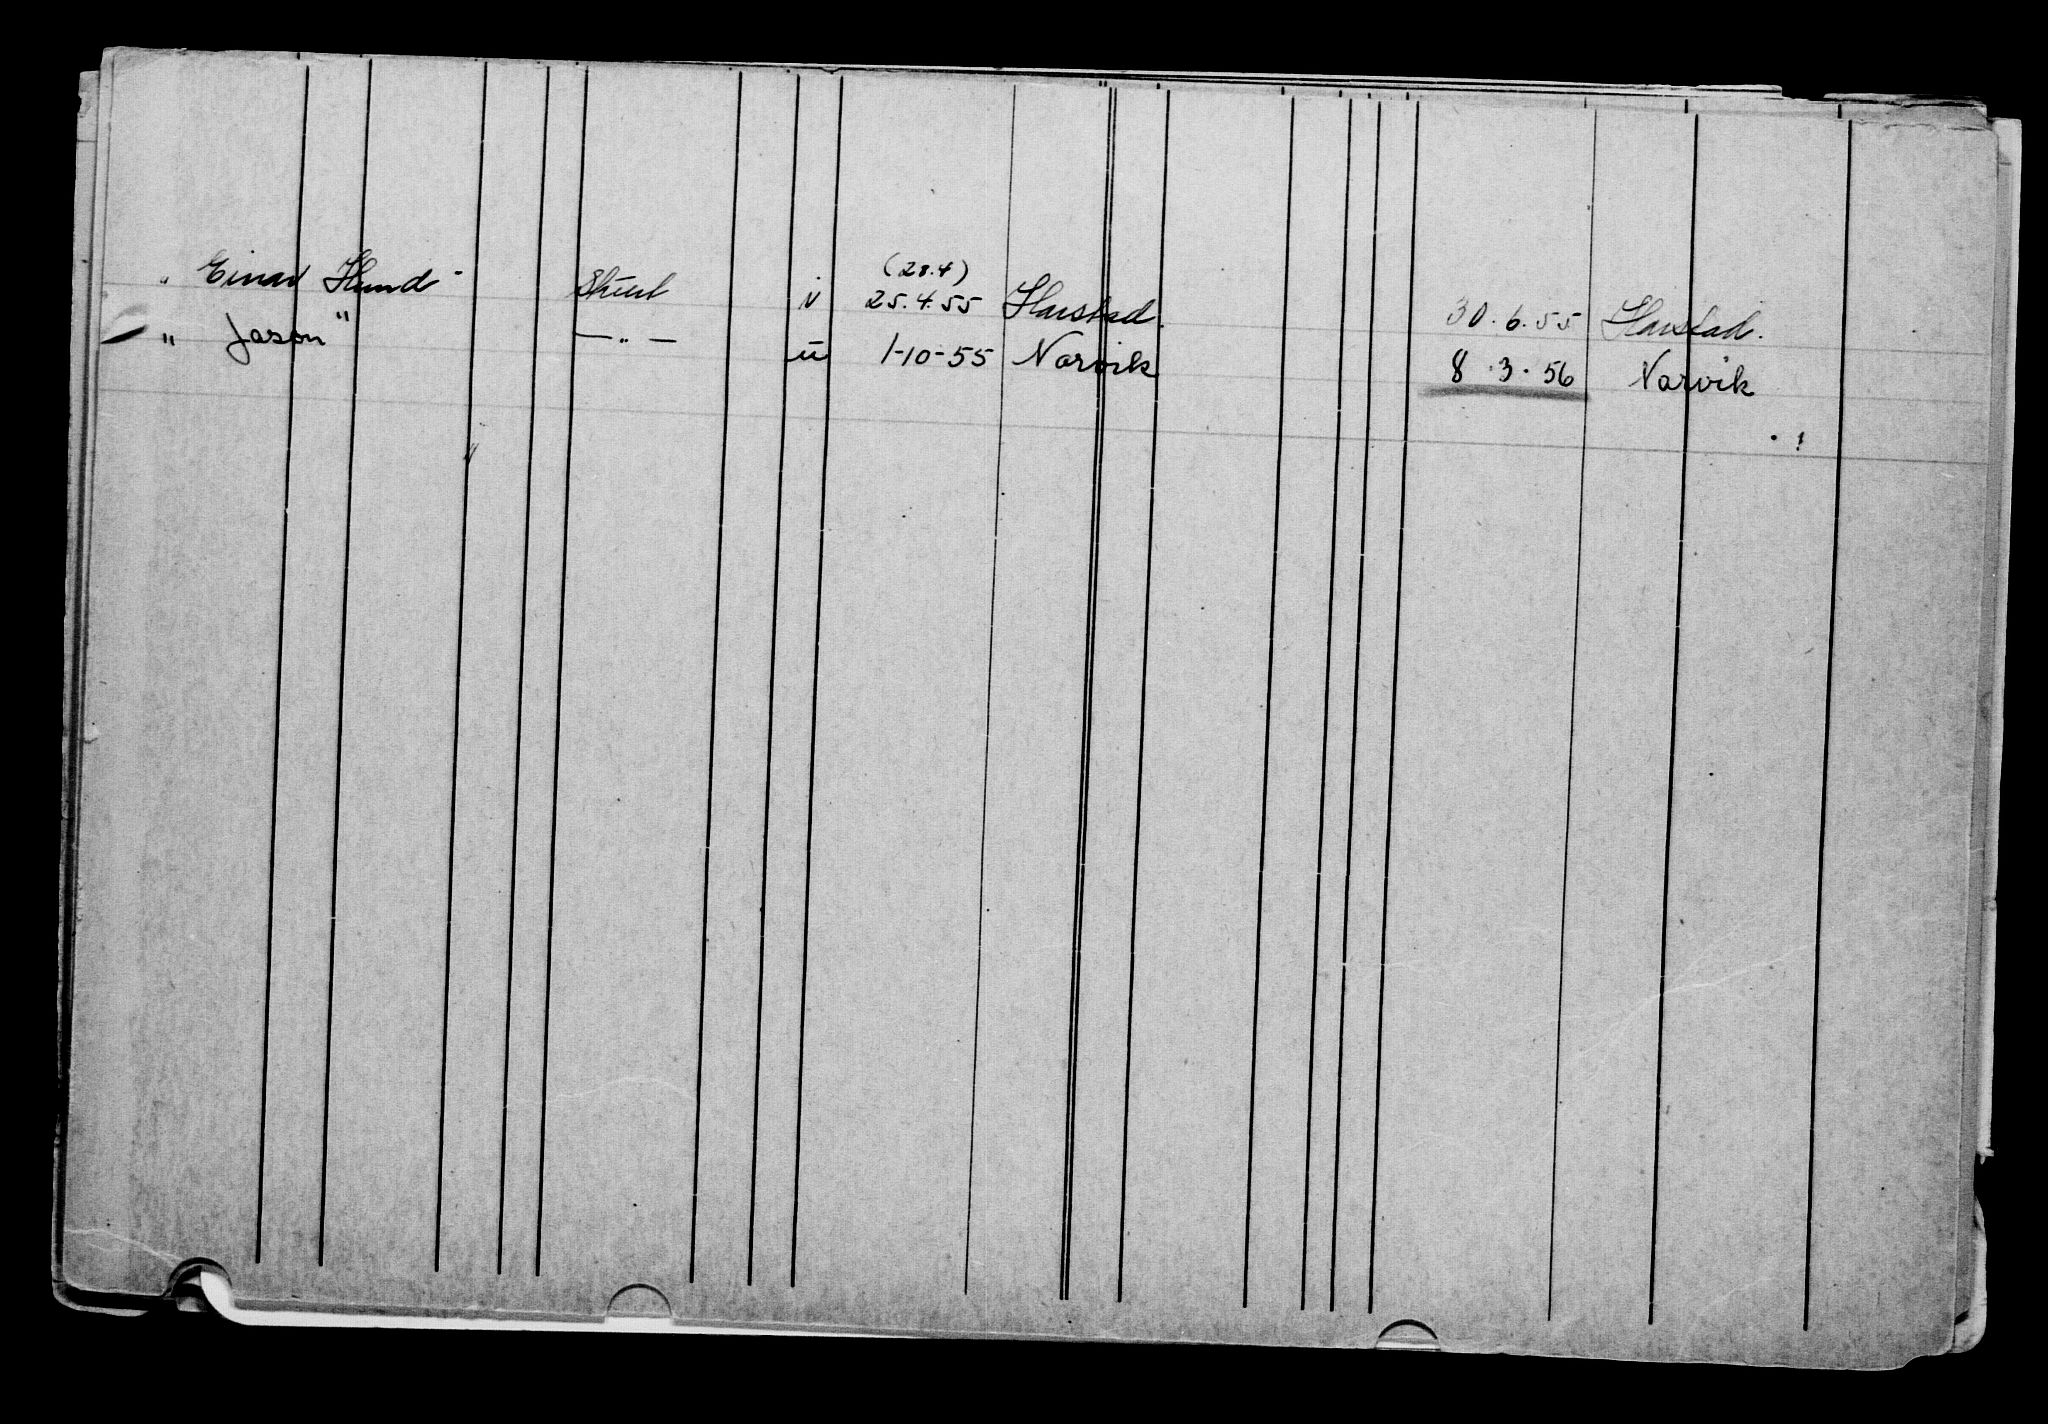 " Einar Hund" i (28.4) 25.4.55 Harstad. 30.6.55 Harstad.
" Jason" — " — u 1-10-55 Narvik 8.3.56 Narvik